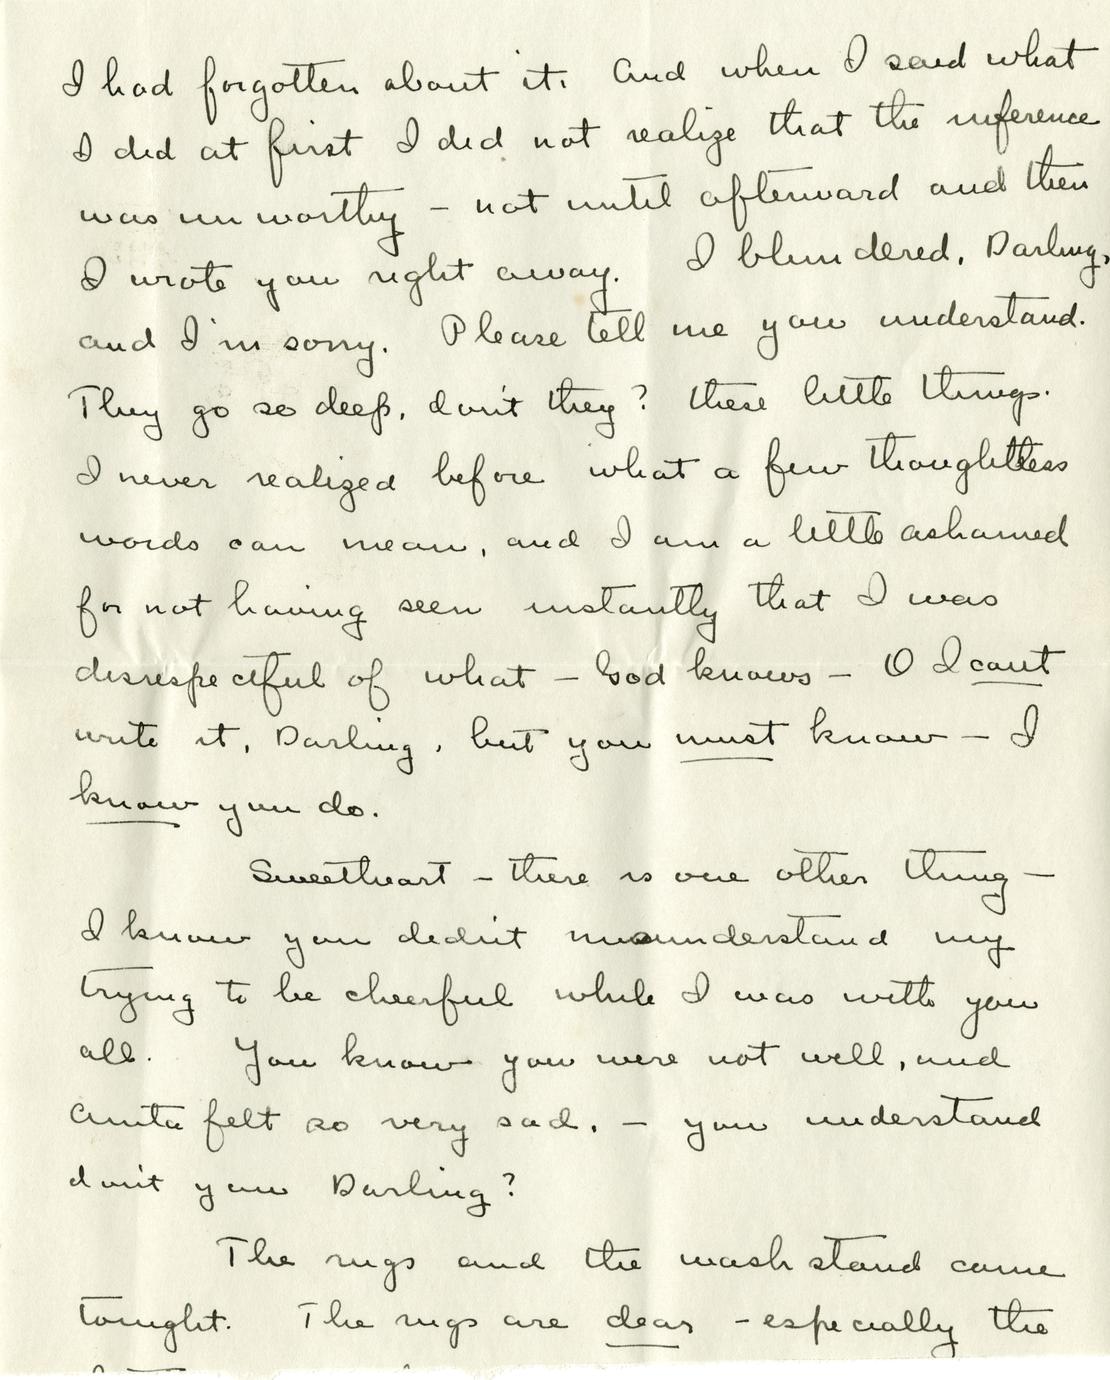 I had forgotten about it. And when I said what
I did at first I did not realize that the inference
was unworthy – not until afterward and then
I wrote you right away. I blundered, Darling,
and I'm sorry. Please tell me you understand.
They go so deep, don't they? these little things.
I never realized before what a few thoughtless
words can mean, and I am a little ashamed
for not having seen instantly that I was
disrespectful of what – God knows – O I can't
write it, Darling, but you must know – I
know you do.
Sweetheart – there is one other thing –
I know you didn't misunderstand my
trying to be cheerful while I was with you
all. You know you were not well, and
Anita felt so very sad. – you understand
don't you Darling?
The rugs and the wash stand came
tonight. The rugs are dear - especially the